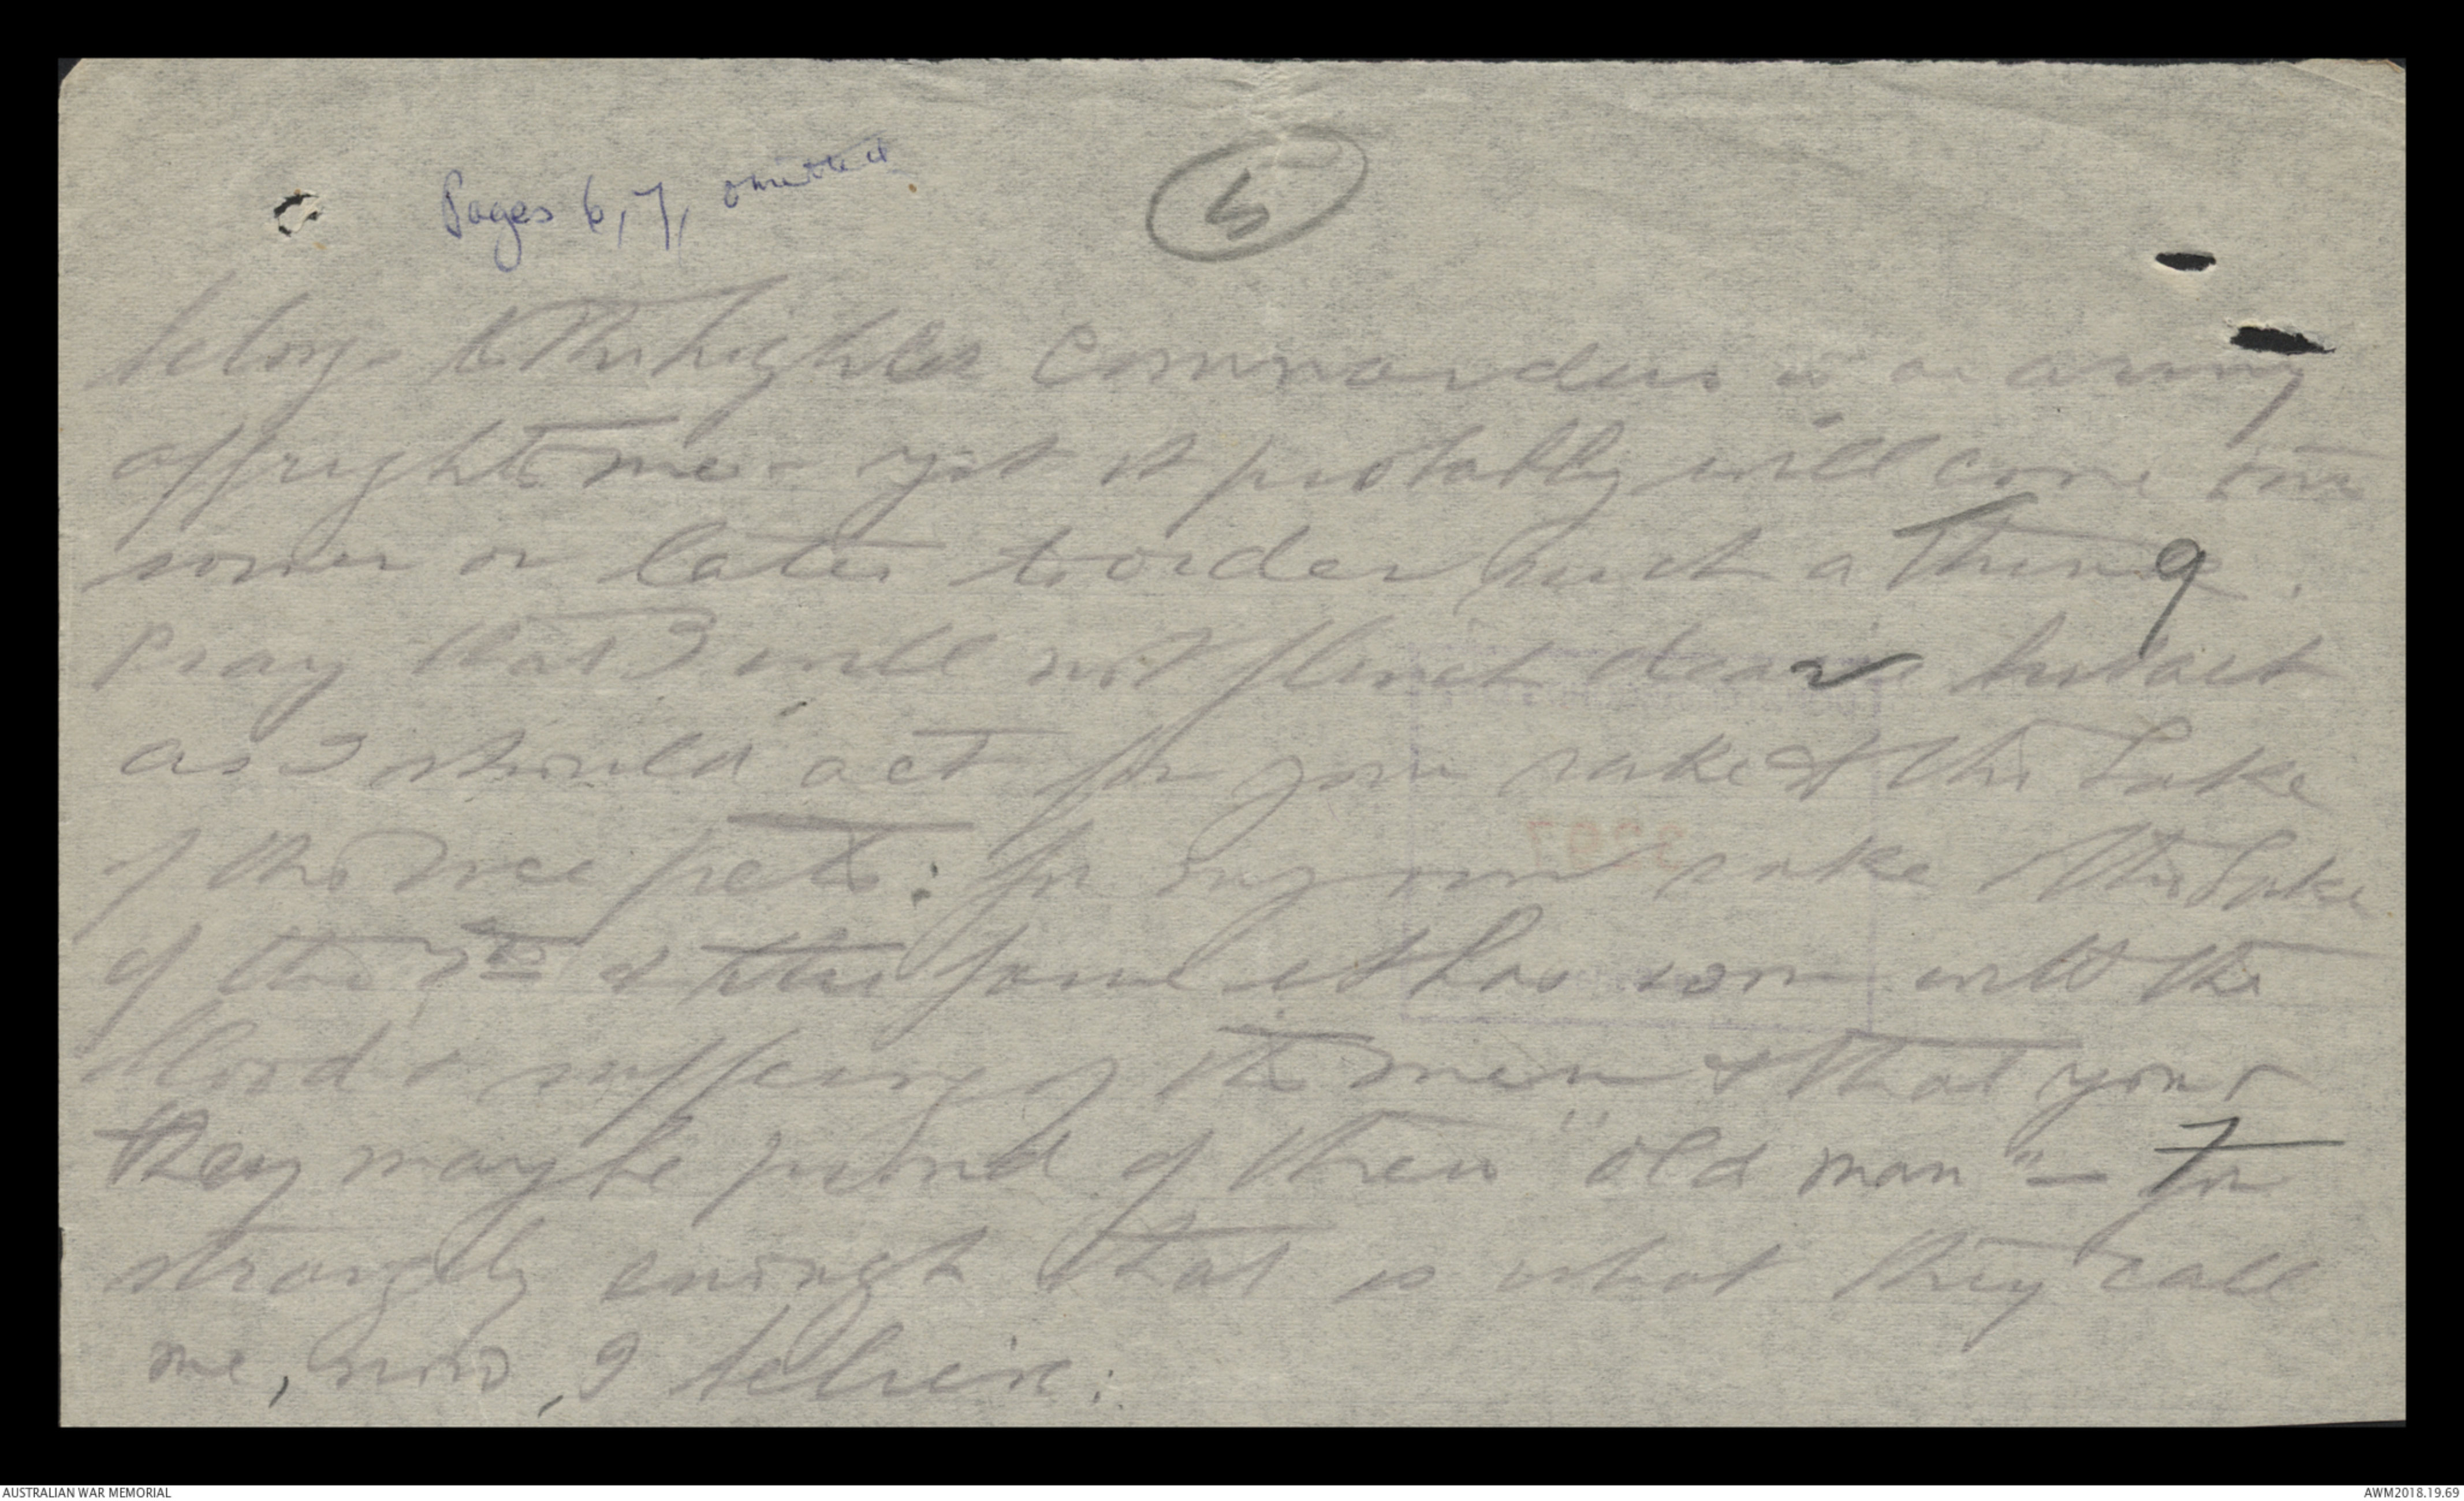 Pages 6, 7, omitted
5
belongs to the higher Commanders in an army
affrights me - yet it probably will come
sooner or later to order such a thing.
Pray that I will not flinch dear but act
as I should act for your sake & the sake
of the wee pets: for my own sake & the sake
of the 7th & the fame it has won with the
blood & suffering of the men & that you &
they may be proud of their "old man" - For
strangely enough that is what they call
me, now, I believe:
AUSTRALIAN WAR MEMORIAL
AWM2018.19.69